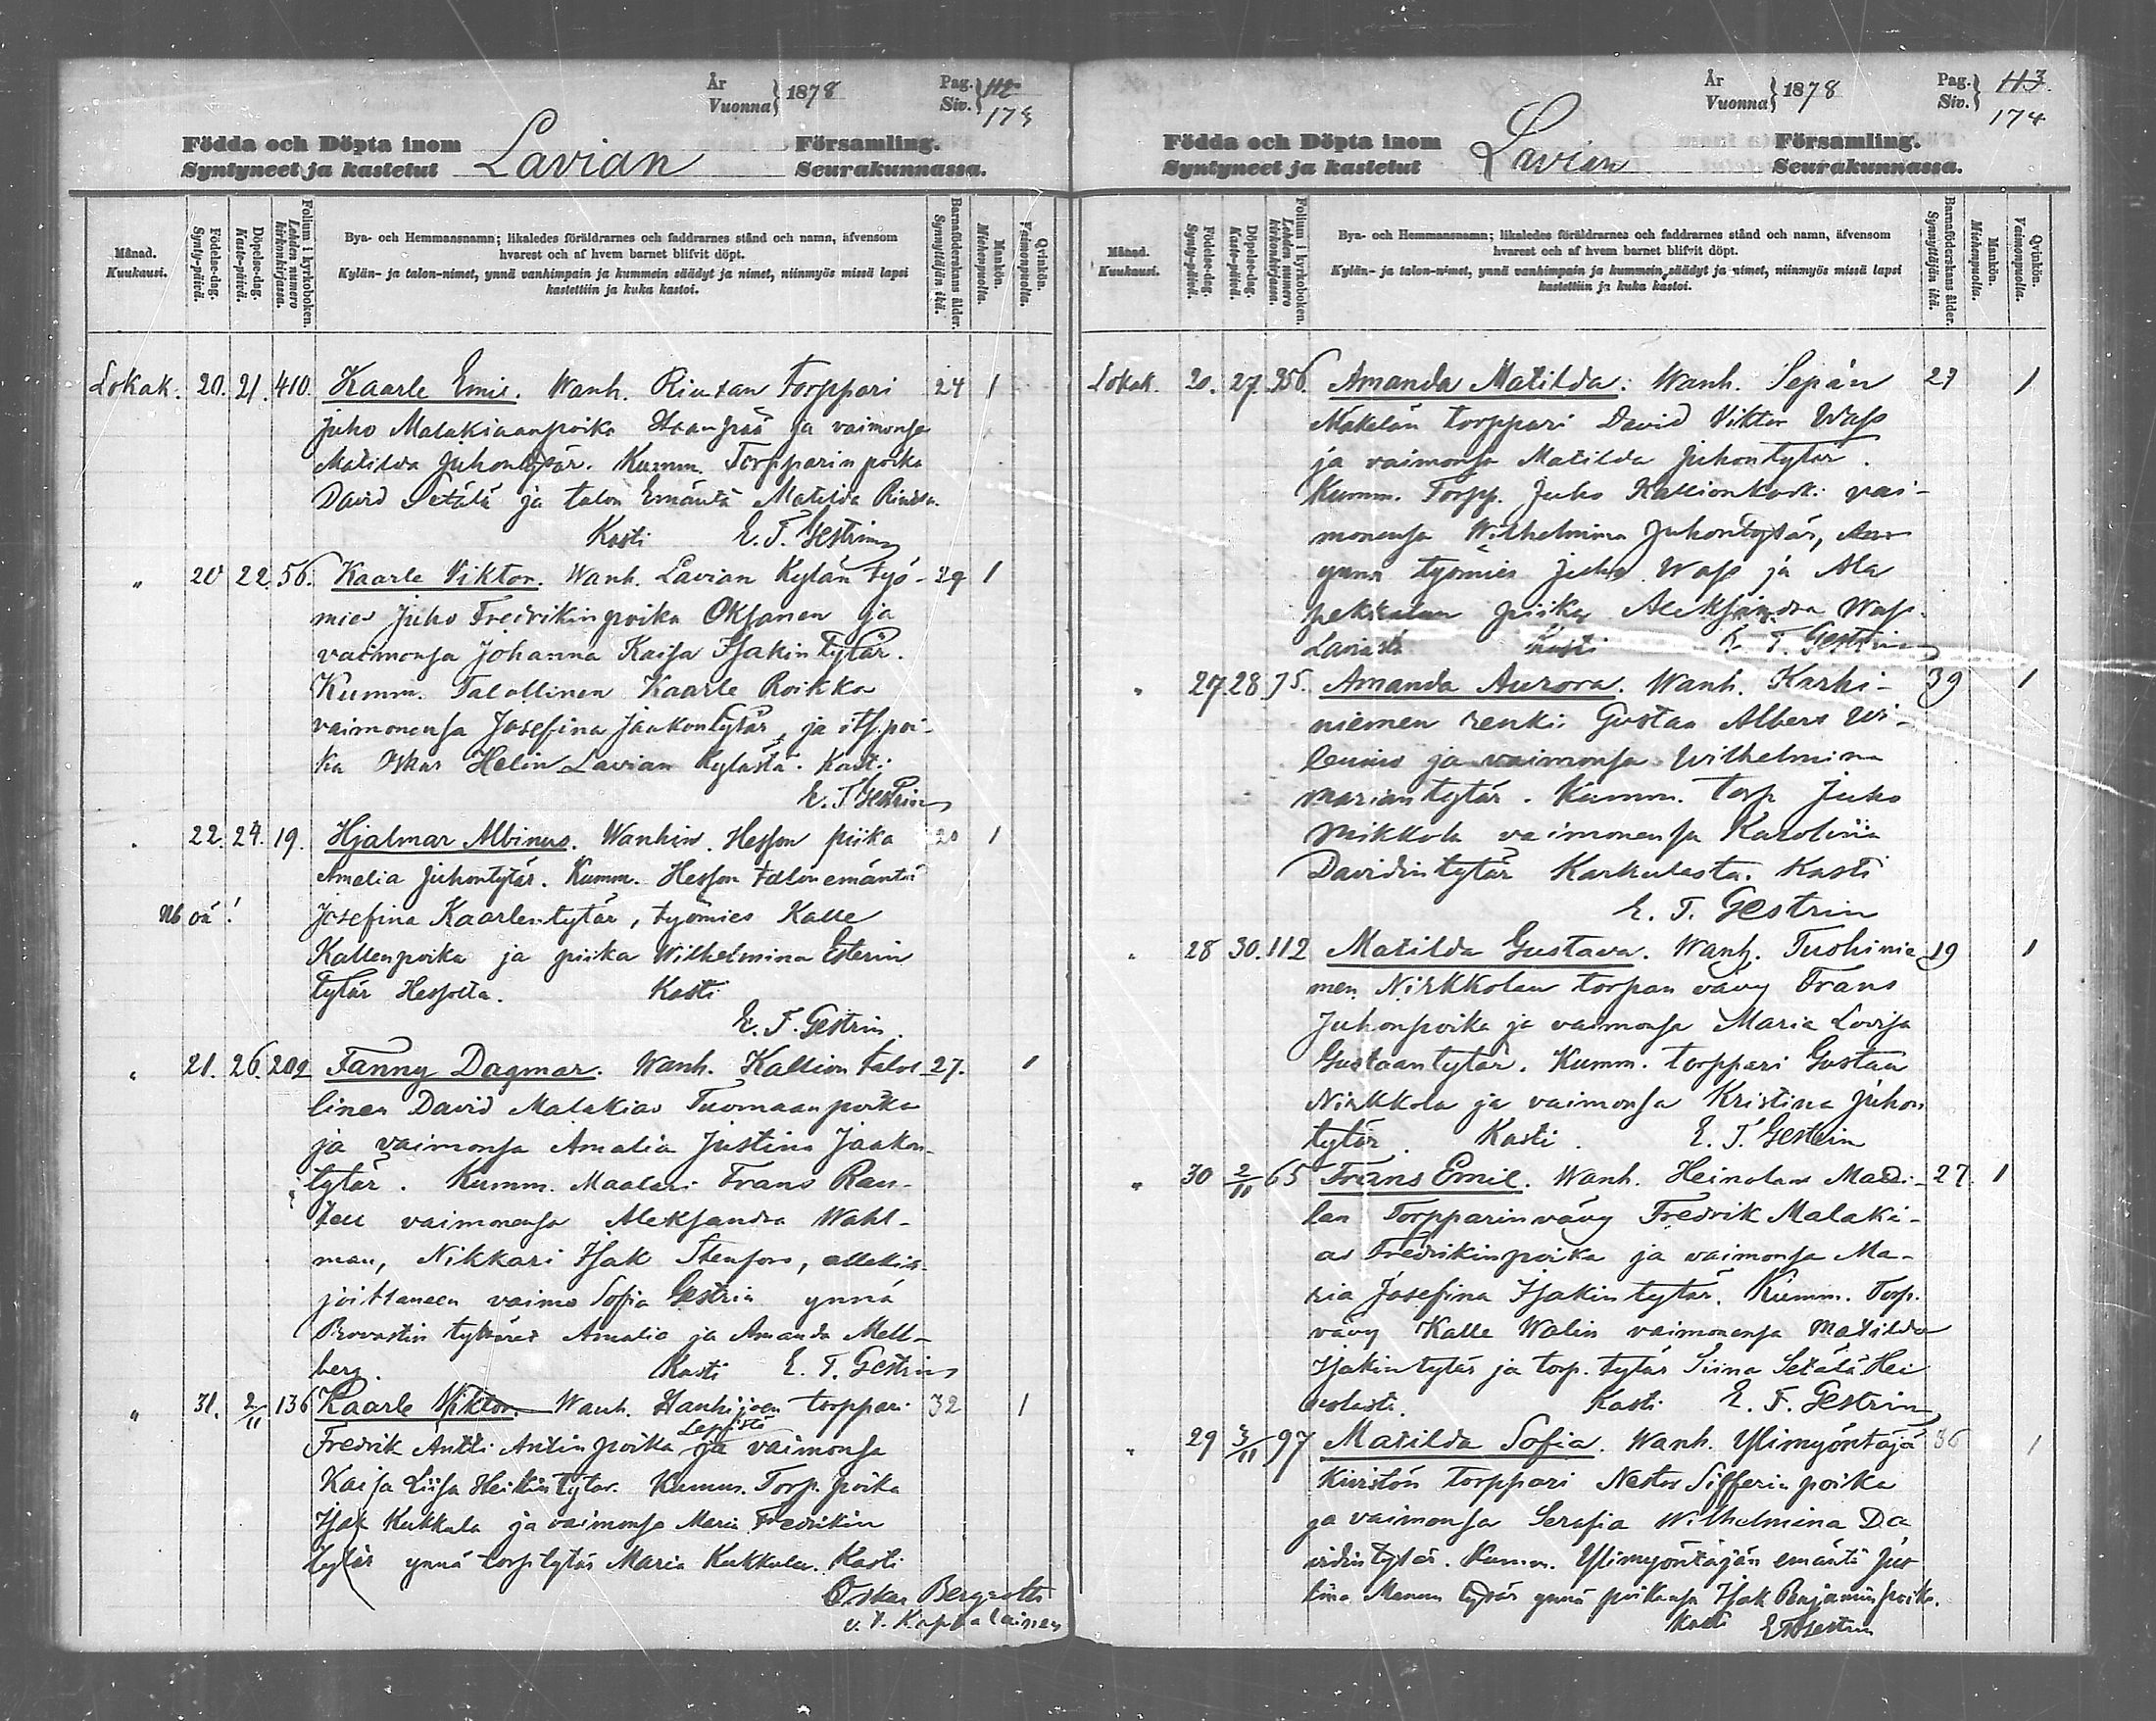 År
Vuonna } 1878
Pag.
Siv. } 112
173
Födda och Döpta inom
Syntyneet ja kastetut
Lavian
Församling.
Seurakunnassa.
Månad.
Kuukausi.
Födelse-dag.
Synty-päivä.
Döpelse-dag.
Kaste-päivä.
Folium i kyrkoboken.
Lehden numero kirkonkirjassa.
Bya- och Hemmansnamn; likaledes föräldrarnes och faddrarnes stånd och namn, äfvensom
hvarest och af hvem barnet blifvit döpt.
Kylän- ja talon-nimet, ynnä vanhimpain ja kummein säädyt ja nimet, niinmyös missä lapsi
kastettiin ja kuka kastoi.
Barnaföderskans ålder.
Synnyttäjän ikä.
Mankön.
Miehenpuolia.
Qvinkön.
Vaimonpuolia.
Lokak. 20. 21. 410. Kaarle Emil. Wanh. Torppari 24 1
Juho Malakiaanpoika ja vaimonsa
Matilda Juhontytär. Kumm. Torpparin poika
David Setälä ja talon Emäntä Matilda
Kasti E. T. Gestrin
" 20 22. 56. Kaarle Viktor. Wanh. Lavian Kylän työ- 29 1
mies Juho Fredrikinpoika Oksanen ja
vaimonsa Johanna Kaisa Isakintytär.
Kumm. Talollinen Kaarle Roikka
vaimonensa Josefina Jaakontytär, ja its. poi-
ka Oskar Helin Lavian Kylästä. Kasti
E. T Gestrin
" 22. 24. 19. Hjalmar Albinus. Wanhin. Hesson piika 20 1
Amalia Juhontytär. Kumm. Hesson talon emäntä
Nb oä!
Josefina Kaarlentytär, työmies Kalle
Kallenpoika ja piika Wilhelmina Esterin
tytär Hessolta. Kasti
E. T. Gestrin.
" 21. 26. 202 Fanny Dagmar. Wanh. Kallion talol- 27. 1
linen David Malakias Tuomaanpoika
ja vaimonsa Amalia Justina Jaakon-
tytär. Kumm. Maalari Frans Rau-
vaimonensa Aleksandra Wahl-
man, Nikkari Isak Stenfors, allekir-
joittaneen vaimo Sofia Gestrin ynnä
Provastin tyttäret Amalia ja Amanda Mell-
berg. Kasti E. T. Gestrin
" 31. 2/11 136 Kaarle Viktor. Wanh. Hanhijoen torppari 32 1
Leppistö
Fredrik Antti Antinpoika ja vaimonsa
Kaisa Liisa Heikintytär. Kumm. Torp. poika
Isak Kukkula ja vaimonsa Maria Fredrikin
tytär ynnä torp. tytär Maria Kukkula. Kasti
Oskar Bergroth
v. t. Kappalainen
År
Vuonna } 1878
Pag.
Siv. } 113.
174
Födda och Döpta inom
Syntyneet ja kastetut
Lavian
Församling.
Seurakunnassa.
Månad.
Kuukausi.
Födelse-dag.
Synty-päivä.
Döpelse-dag.
Kaste-päivä.
Folium i kyrkoboken.
Lehden numero kirkonkirjassa.
Bya- och Hemmansnamn; likaledes föräldrarnes och faddrarnes stånd och namn, äfvensom
hvarest och af hvem barnet blifvit döpt.
Kylän- ja talon-nimet, ynnä vanhimpain ja kummein säädyt ja nimet, niinmyös missä lapsi
kastettiin ja kuka kastoi.
Barnaföderskans ålder.
Synnyttäjän ikä.
Mankön.
Miehenpuolia.
Qvinkön.
Vaimonpuolia.
Lokak. 20. 27. 356. Amanda Matilda. Wanh. Sepän 27 1
Mäkelän torppari David Viktor Wass
ja vaimonsa Matilda Juhontytär.
Kumm. Torpp. Juho Kallionkoski vai-
monensa Wilhelmina Juhontytär,
ynnä työmies Juho Wass ja Ala
pekkalan piika Aleksandra Wass
Laviasta Kasti E. T. Gestrin
" 27 28. 75. Amanda Aurora. Wanh. Karhi- 39 1
niemen renki Gustaa Albert Wi-
lenius ja vaimonsa Wilhelmina
Mariantytär. Kumm. torp Juho
Mikkola vaimonensa Karolina
Davidintytär Karhulasta. Kasti
E. T. Gestrin
" 28 30. 112 Matilda Gustava. Wanh. Tuohinie 19 1
men Nirkkolan torpan vävy Frans
Juhonpoika ja vaimonsa Maria Lovisa
Gustaantytär. Kumm. torppari Gustaa
Nirkkola ja vaimonsa Kristina Juhon
tytär. Kasti. E. T. Gestrin
" 30 2/11 65 Frans Emil. Wanh. Heinolan Matti- 27. 1
lan Torpparinvävy Fredrik Malaki-
as Fredrikinpoika ja vaimonsa Ma-
ria Josefina Isakintytär. Kumm. Torp.
vävy Kalle Walin vaimonensa Matilda
Isakintytär ja torp. tytär Siina Setälä Hei
nolasta. Kasti E. T. Gestrin
" 29 3/11 97 Matilda Sofia. Wanh. Ylimyöntäjä 36 1
Kiviston torppari Nestor Sifferinpoika
ja vaimonsa Serafia Wilhelmina Da
vidintytär. Kumm. Ylimyöntäjän emäntä Jus
tiina Manun tytär ynnä poikansa Isak Benjaminpoika.
Kasti E T Gestrin